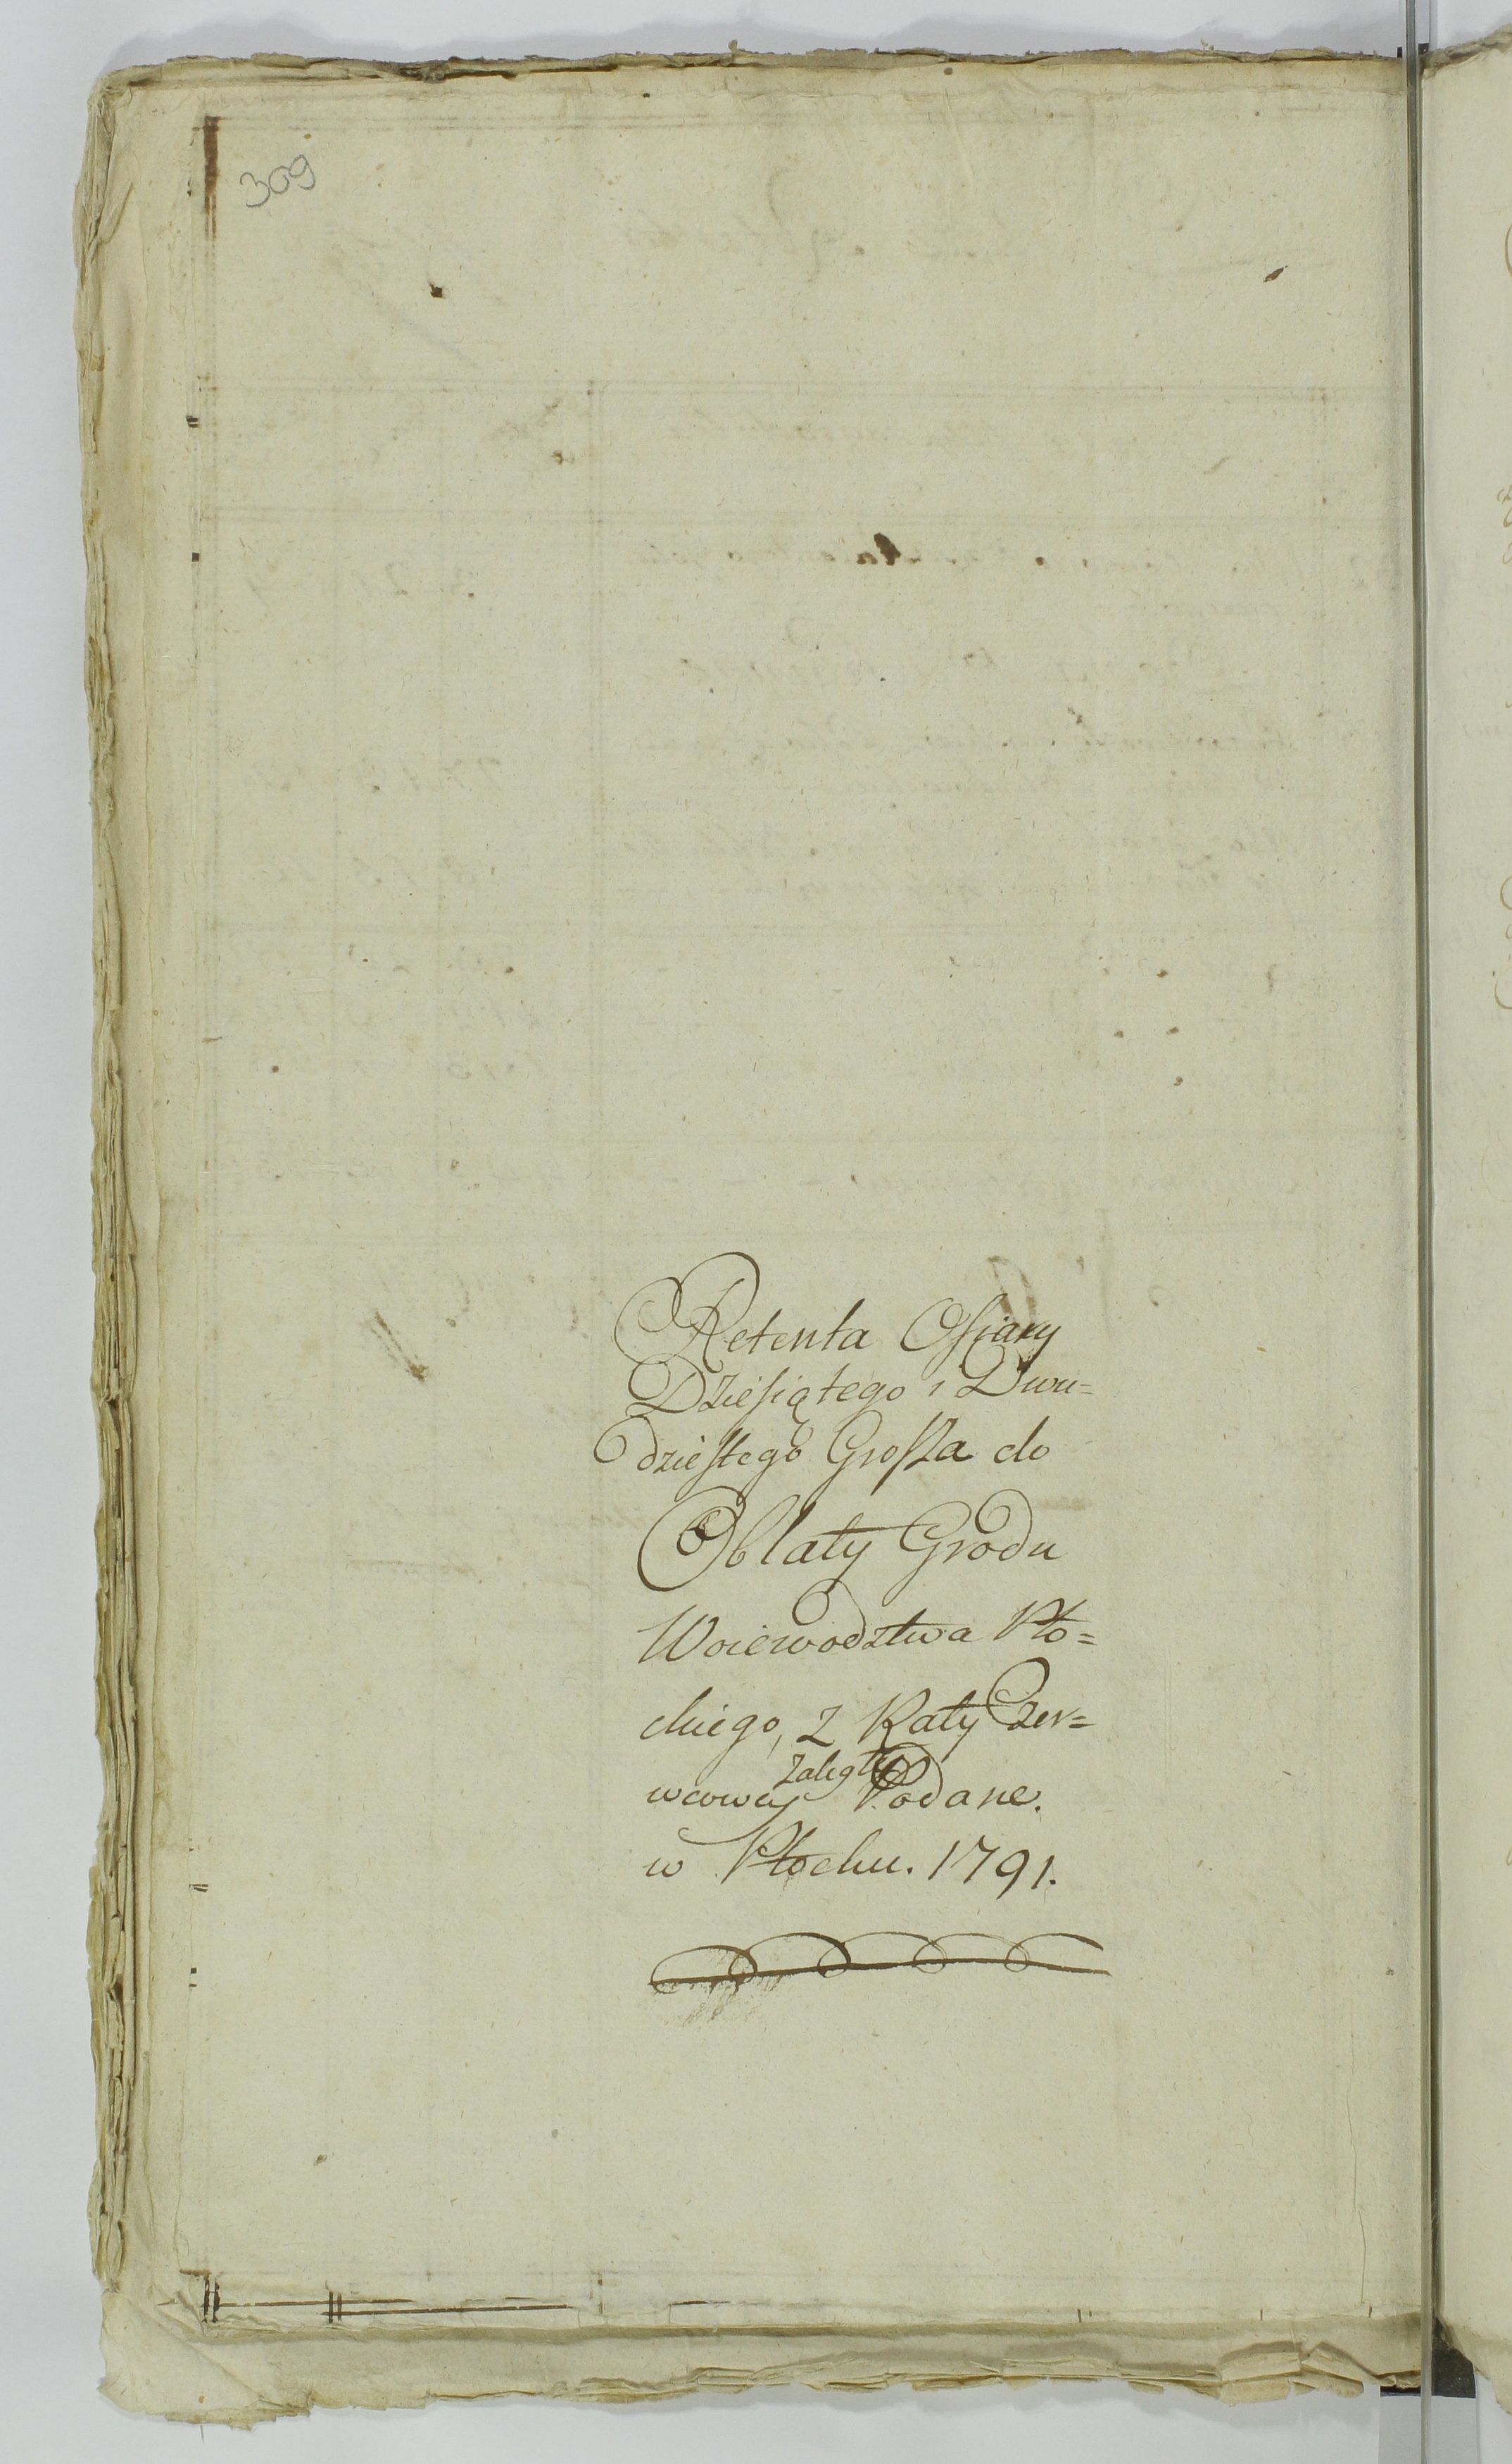 309
Retenta Ofiary
Dziesiątego i Dwu=
dziestego Grosza do
Oblaty Grodu
Woiewodztwa Pło=
ckiego, z Raty Czer=
zaległe
wcowey Podane.
w Płocku. 1791.